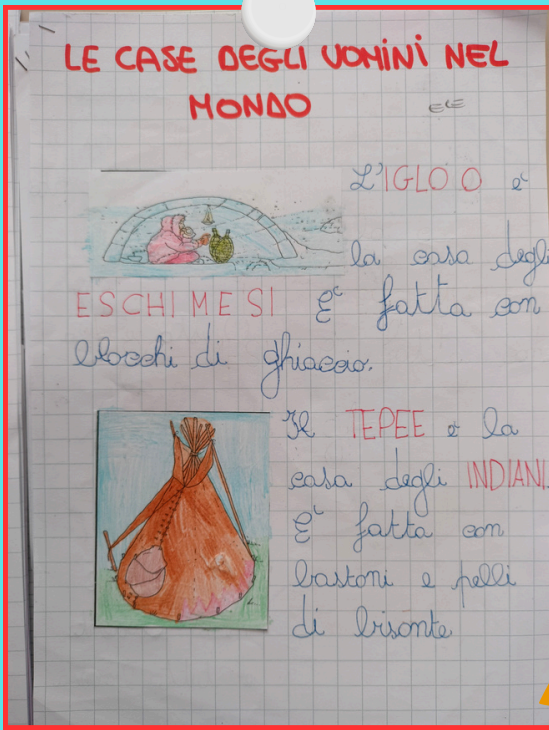 LE CASE DEGLI UOMINI NEL
MONDO
L'IGLOO è
la casa degli
ESCHIMESI È fatta con
blocchi di ghiaccio.
Il TEPEE è la
casa degli INDIANI.
È fatta con
bastoni e pelli
di bisonte